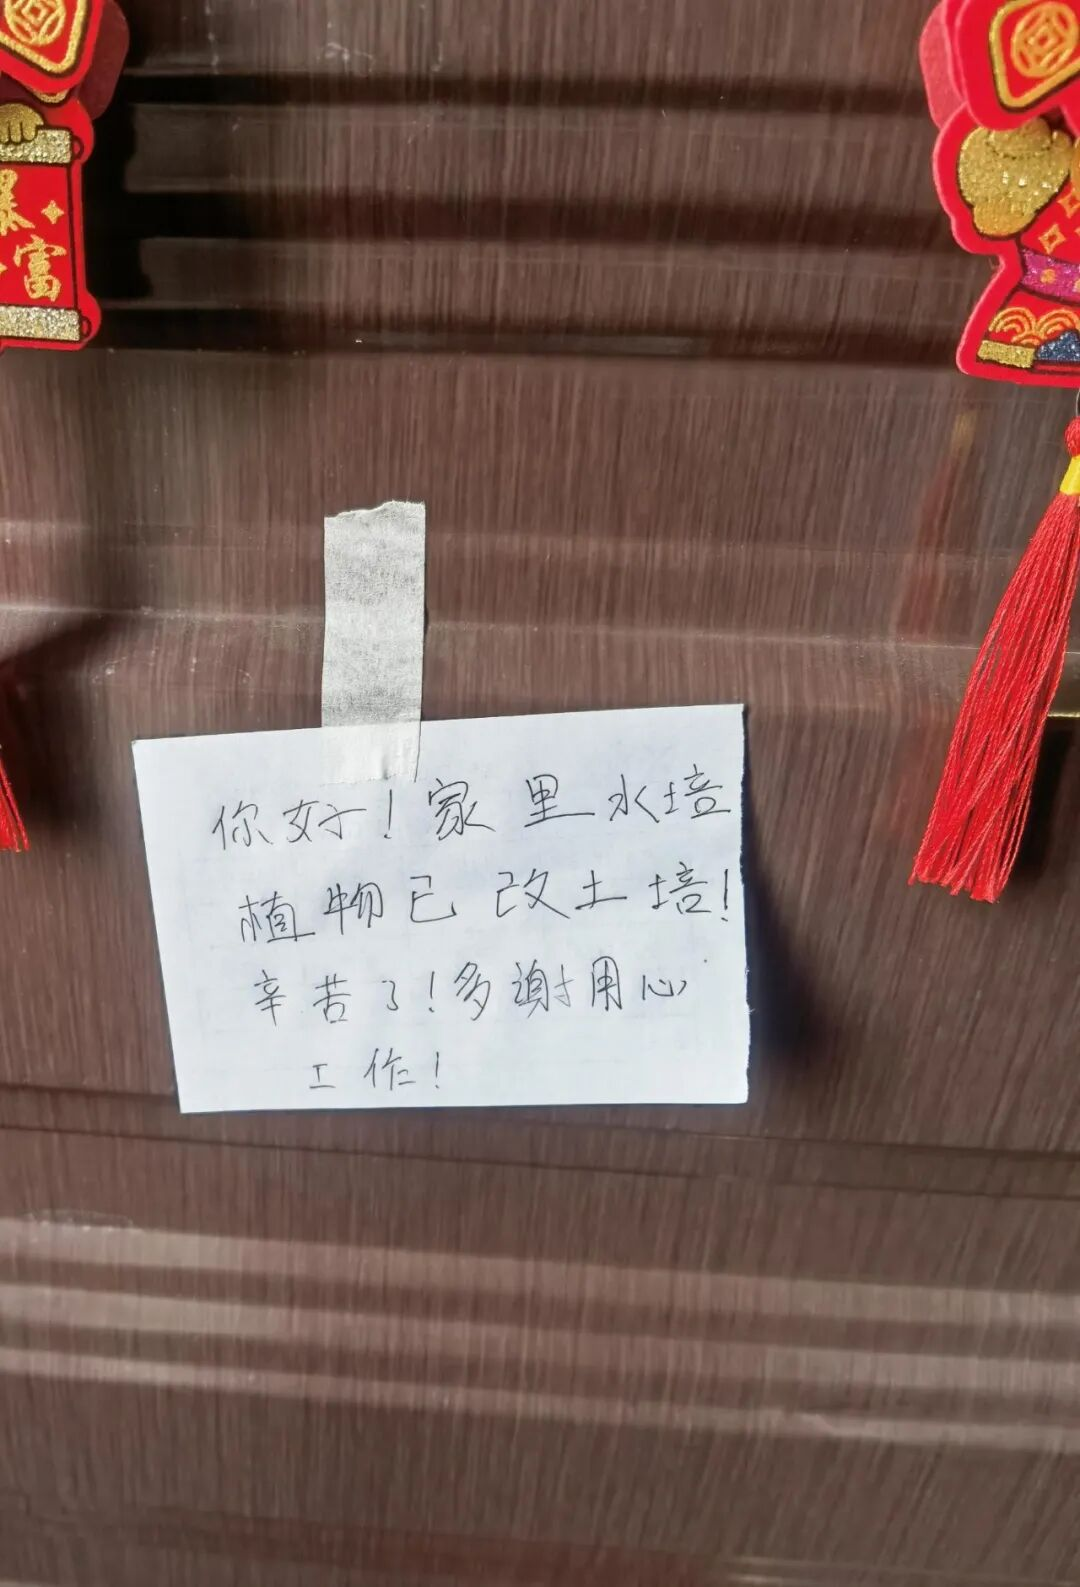 暴富
你好！家里水培
植物已改土培！
辛苦了！多謝用心
工作！